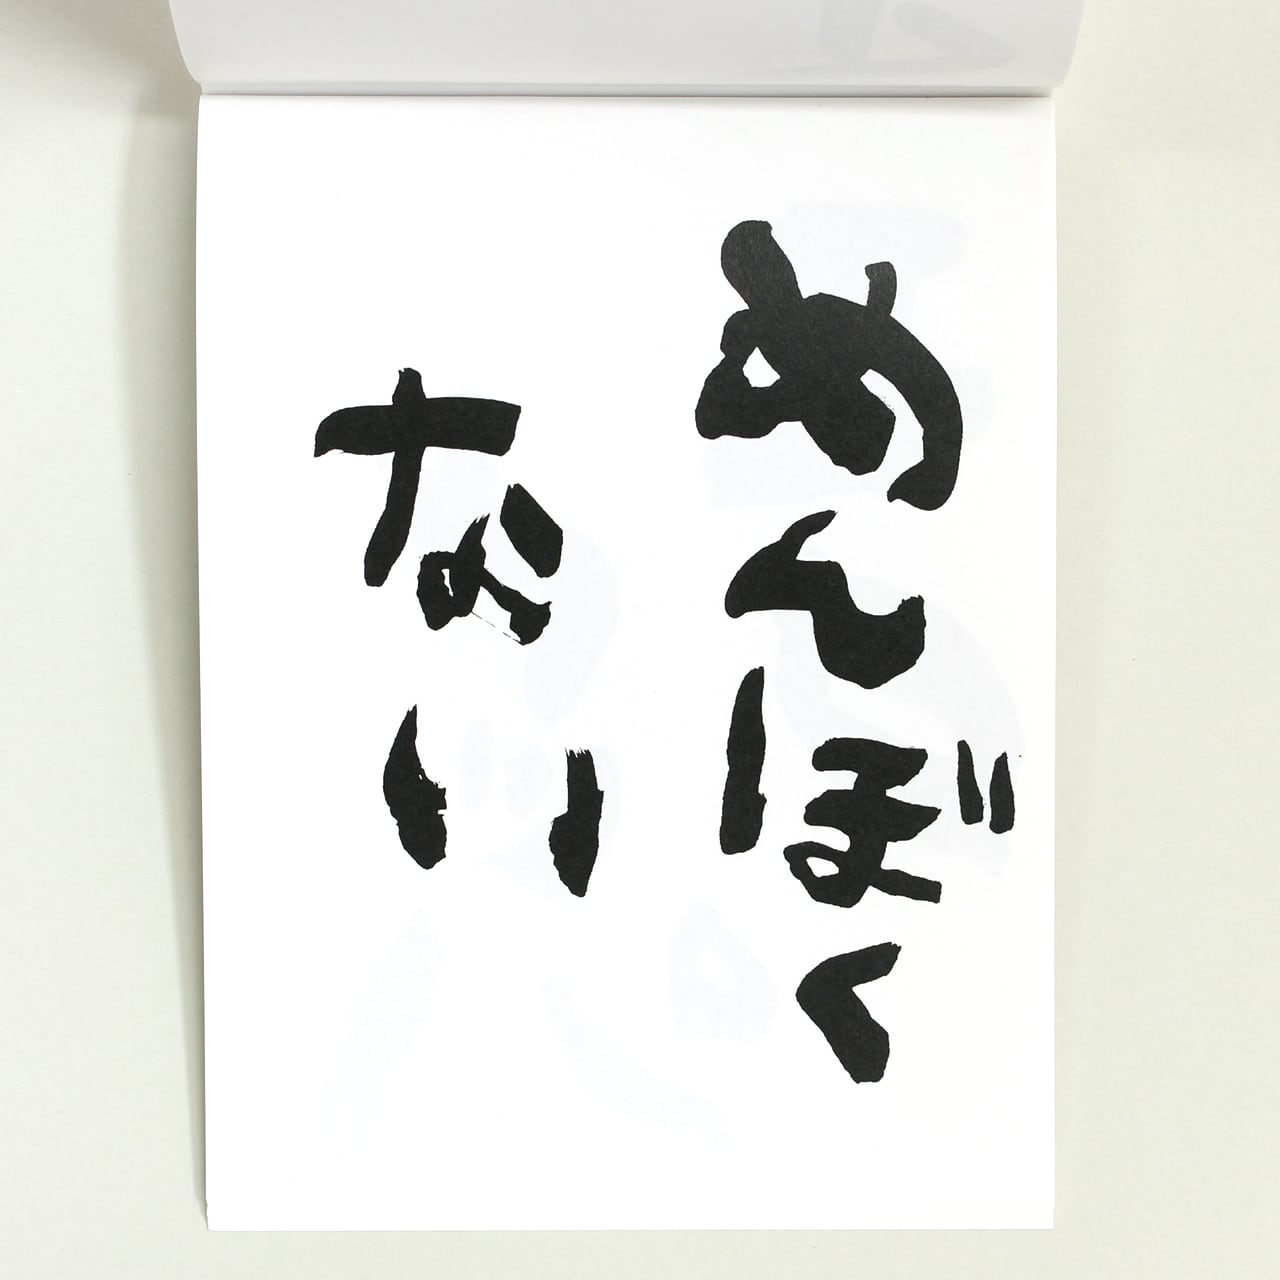 めんぼく
ない